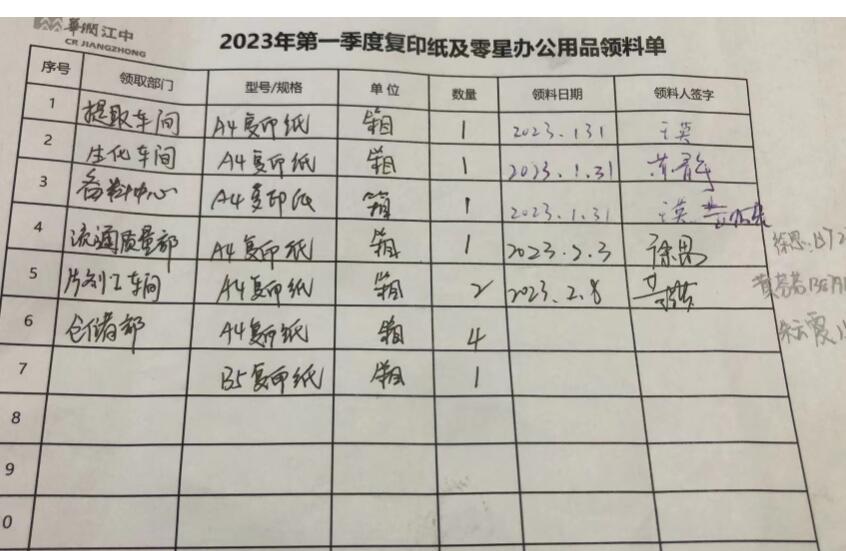 華潤江中
CR JIANGZHONG
2023年第一季度复印纸及零星办公用品领料单
序号 领取部门 型号/规格 单位 数量 领料日期 领料人签字
1 提取车间 A4复印纸 箱 1 2023.1 31
2 生化车间 A4复印纸 箱 1 2023.1.31
3 备料中心 A4复印纸 箱 1 2023.1.31
4 流通质量部 A4复印纸 箱 1 2023.2.3 徐思 徐思
5 片剂工车间 A4复印纸 箱 2 2023.2.8
6 仓储部 A4复印纸 箱 4 朱云霞
7 B5复印纸 箱 1
8
9
0